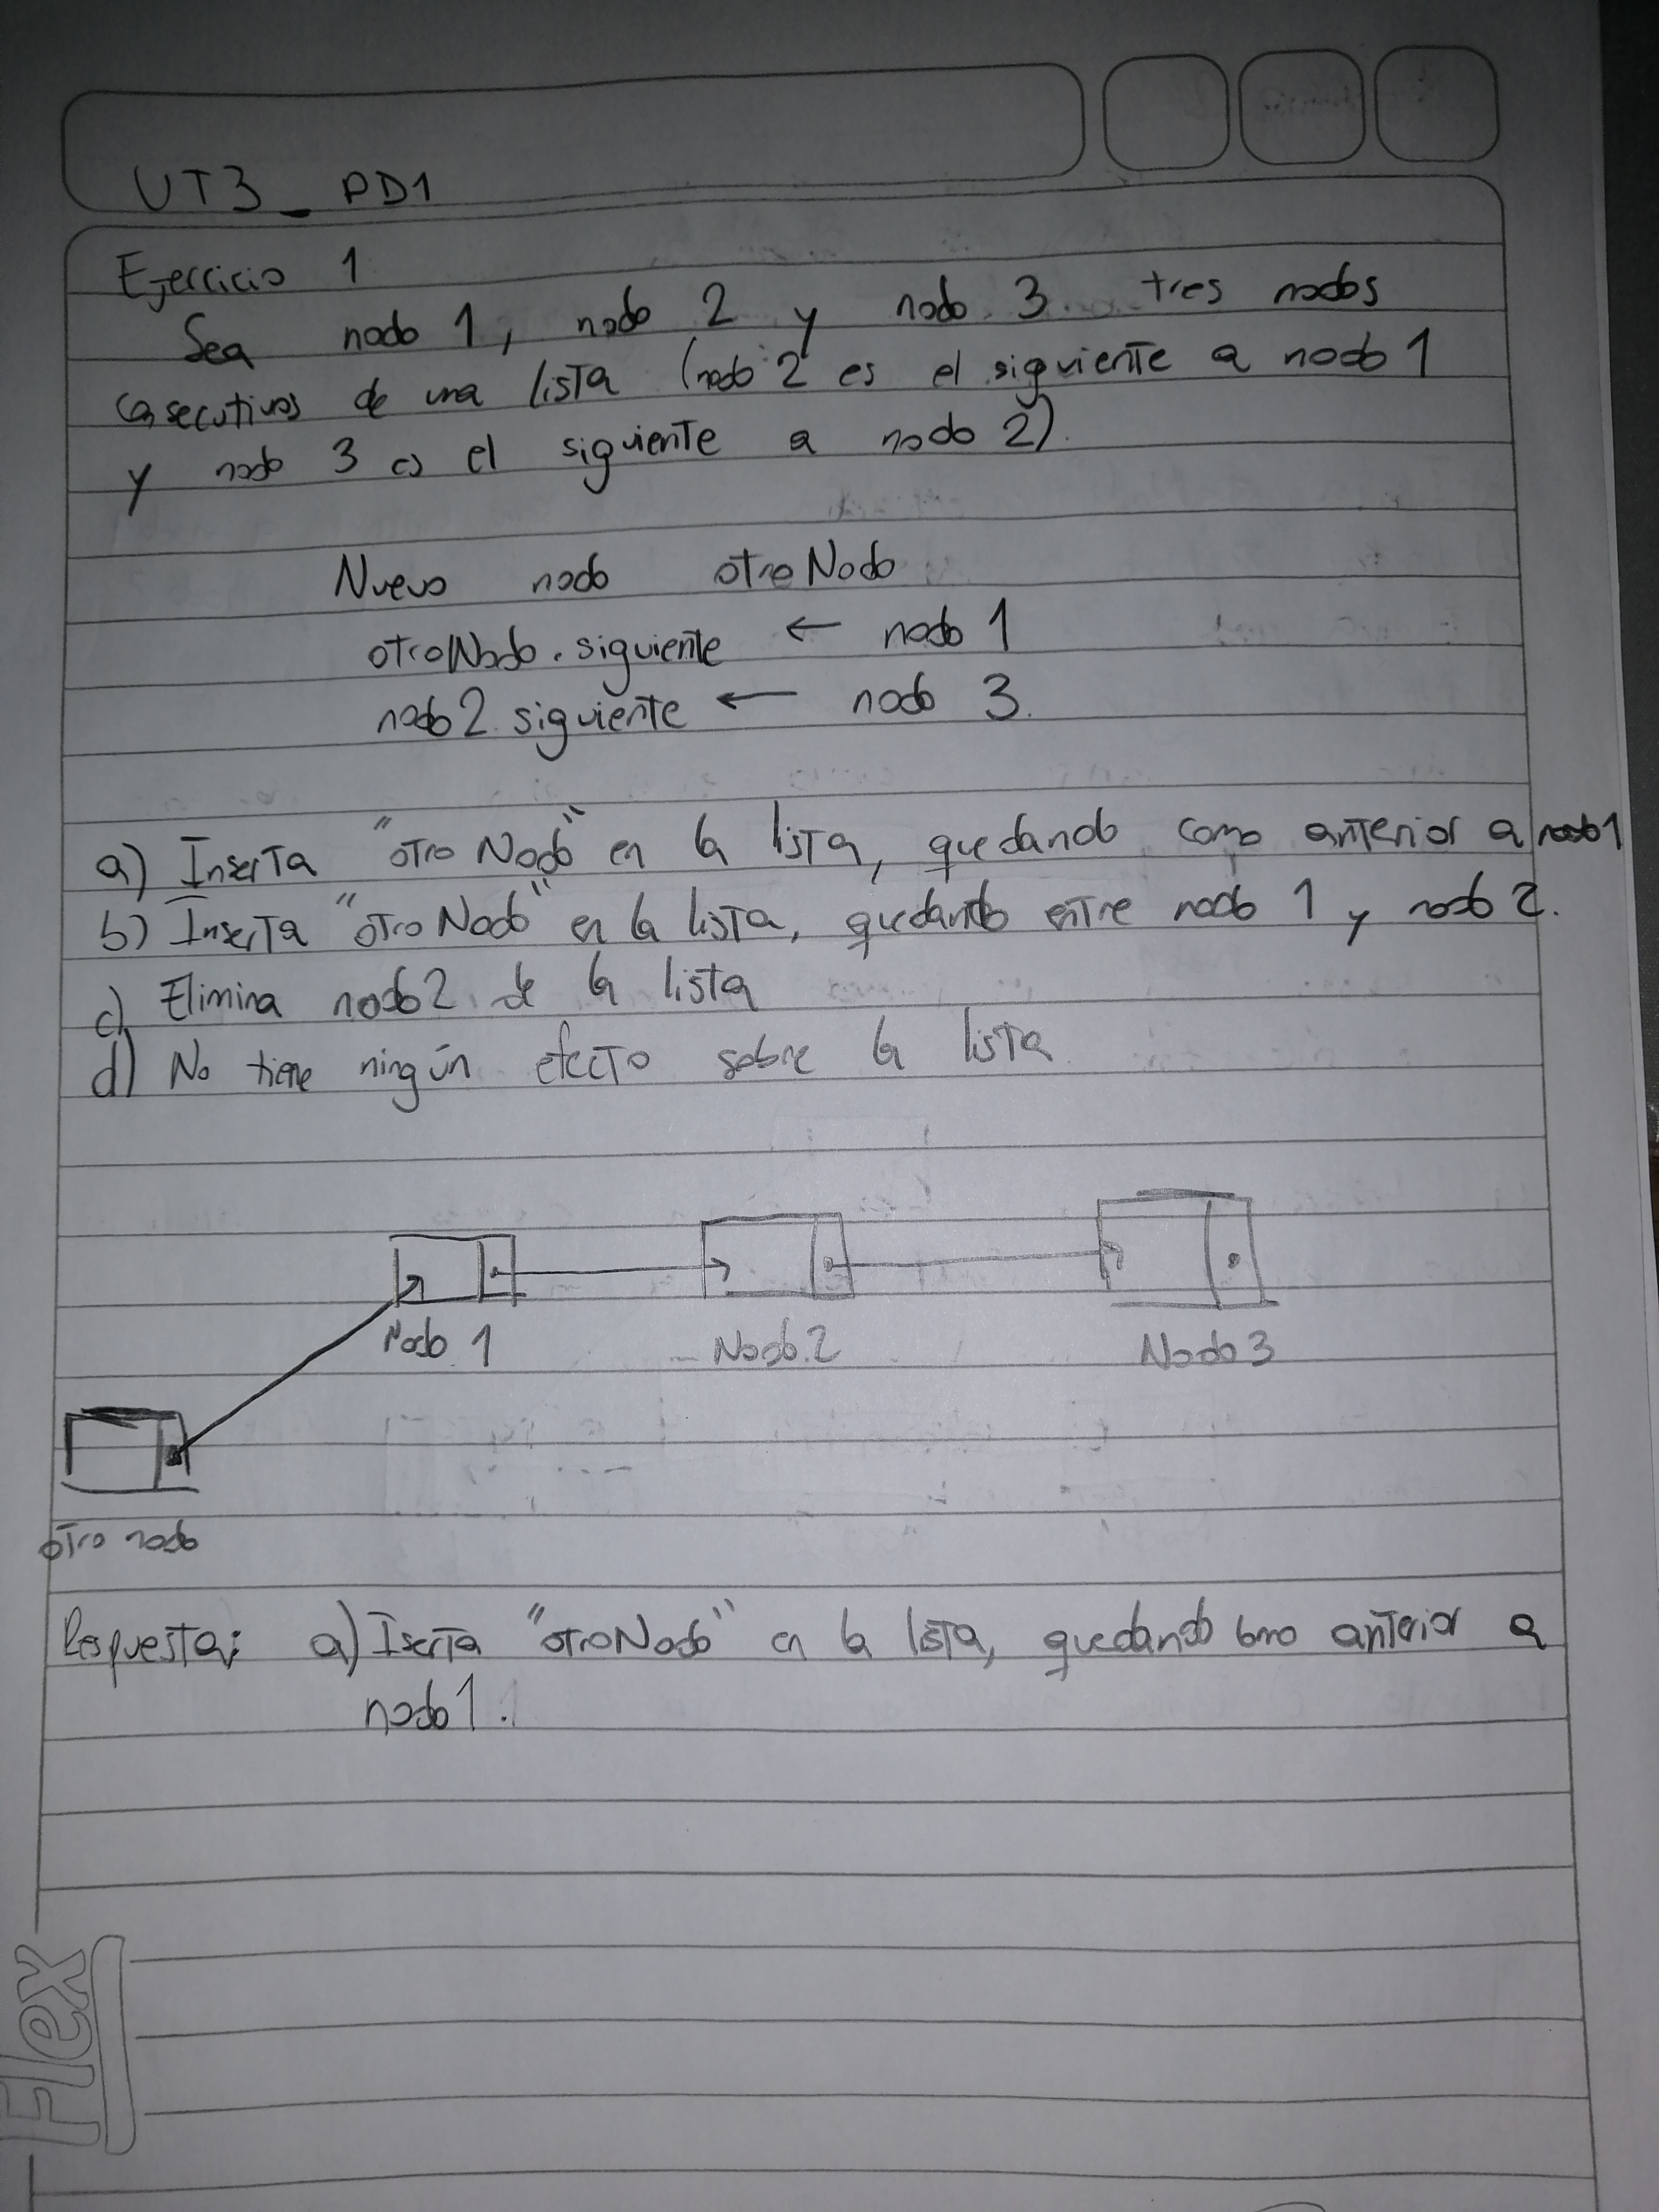 UT3_PD1
Ejercicio 1
Sea nodo 1, nodo 2 y nodo 3 tres nodos
cosecutivos de una lista (nodo 2 es el siguiente a nodo 1
y nodo 3 es el siguiente a nodo 2).
Nuevo nodo otroNodo
otroNodo.siguiente ← nodo 1
nodo2.siguiente ← nodo 3.
a) Inserta "otroNodo" en la lista, quedando como anterior a nodo1
b) Inserta "otroNodo" en la lista, quedando entre nodo 1 y nodo 2.
c) Elimina nodo2 de la lista
d) No tiene ningún efecto sobre la lista
Nodo 1
Nodo 2
Nodo 3
otro nodo
Respuesta: a) Iserta "otroNodo" en la lista, quedando como anterior a
nodo1.
Flex